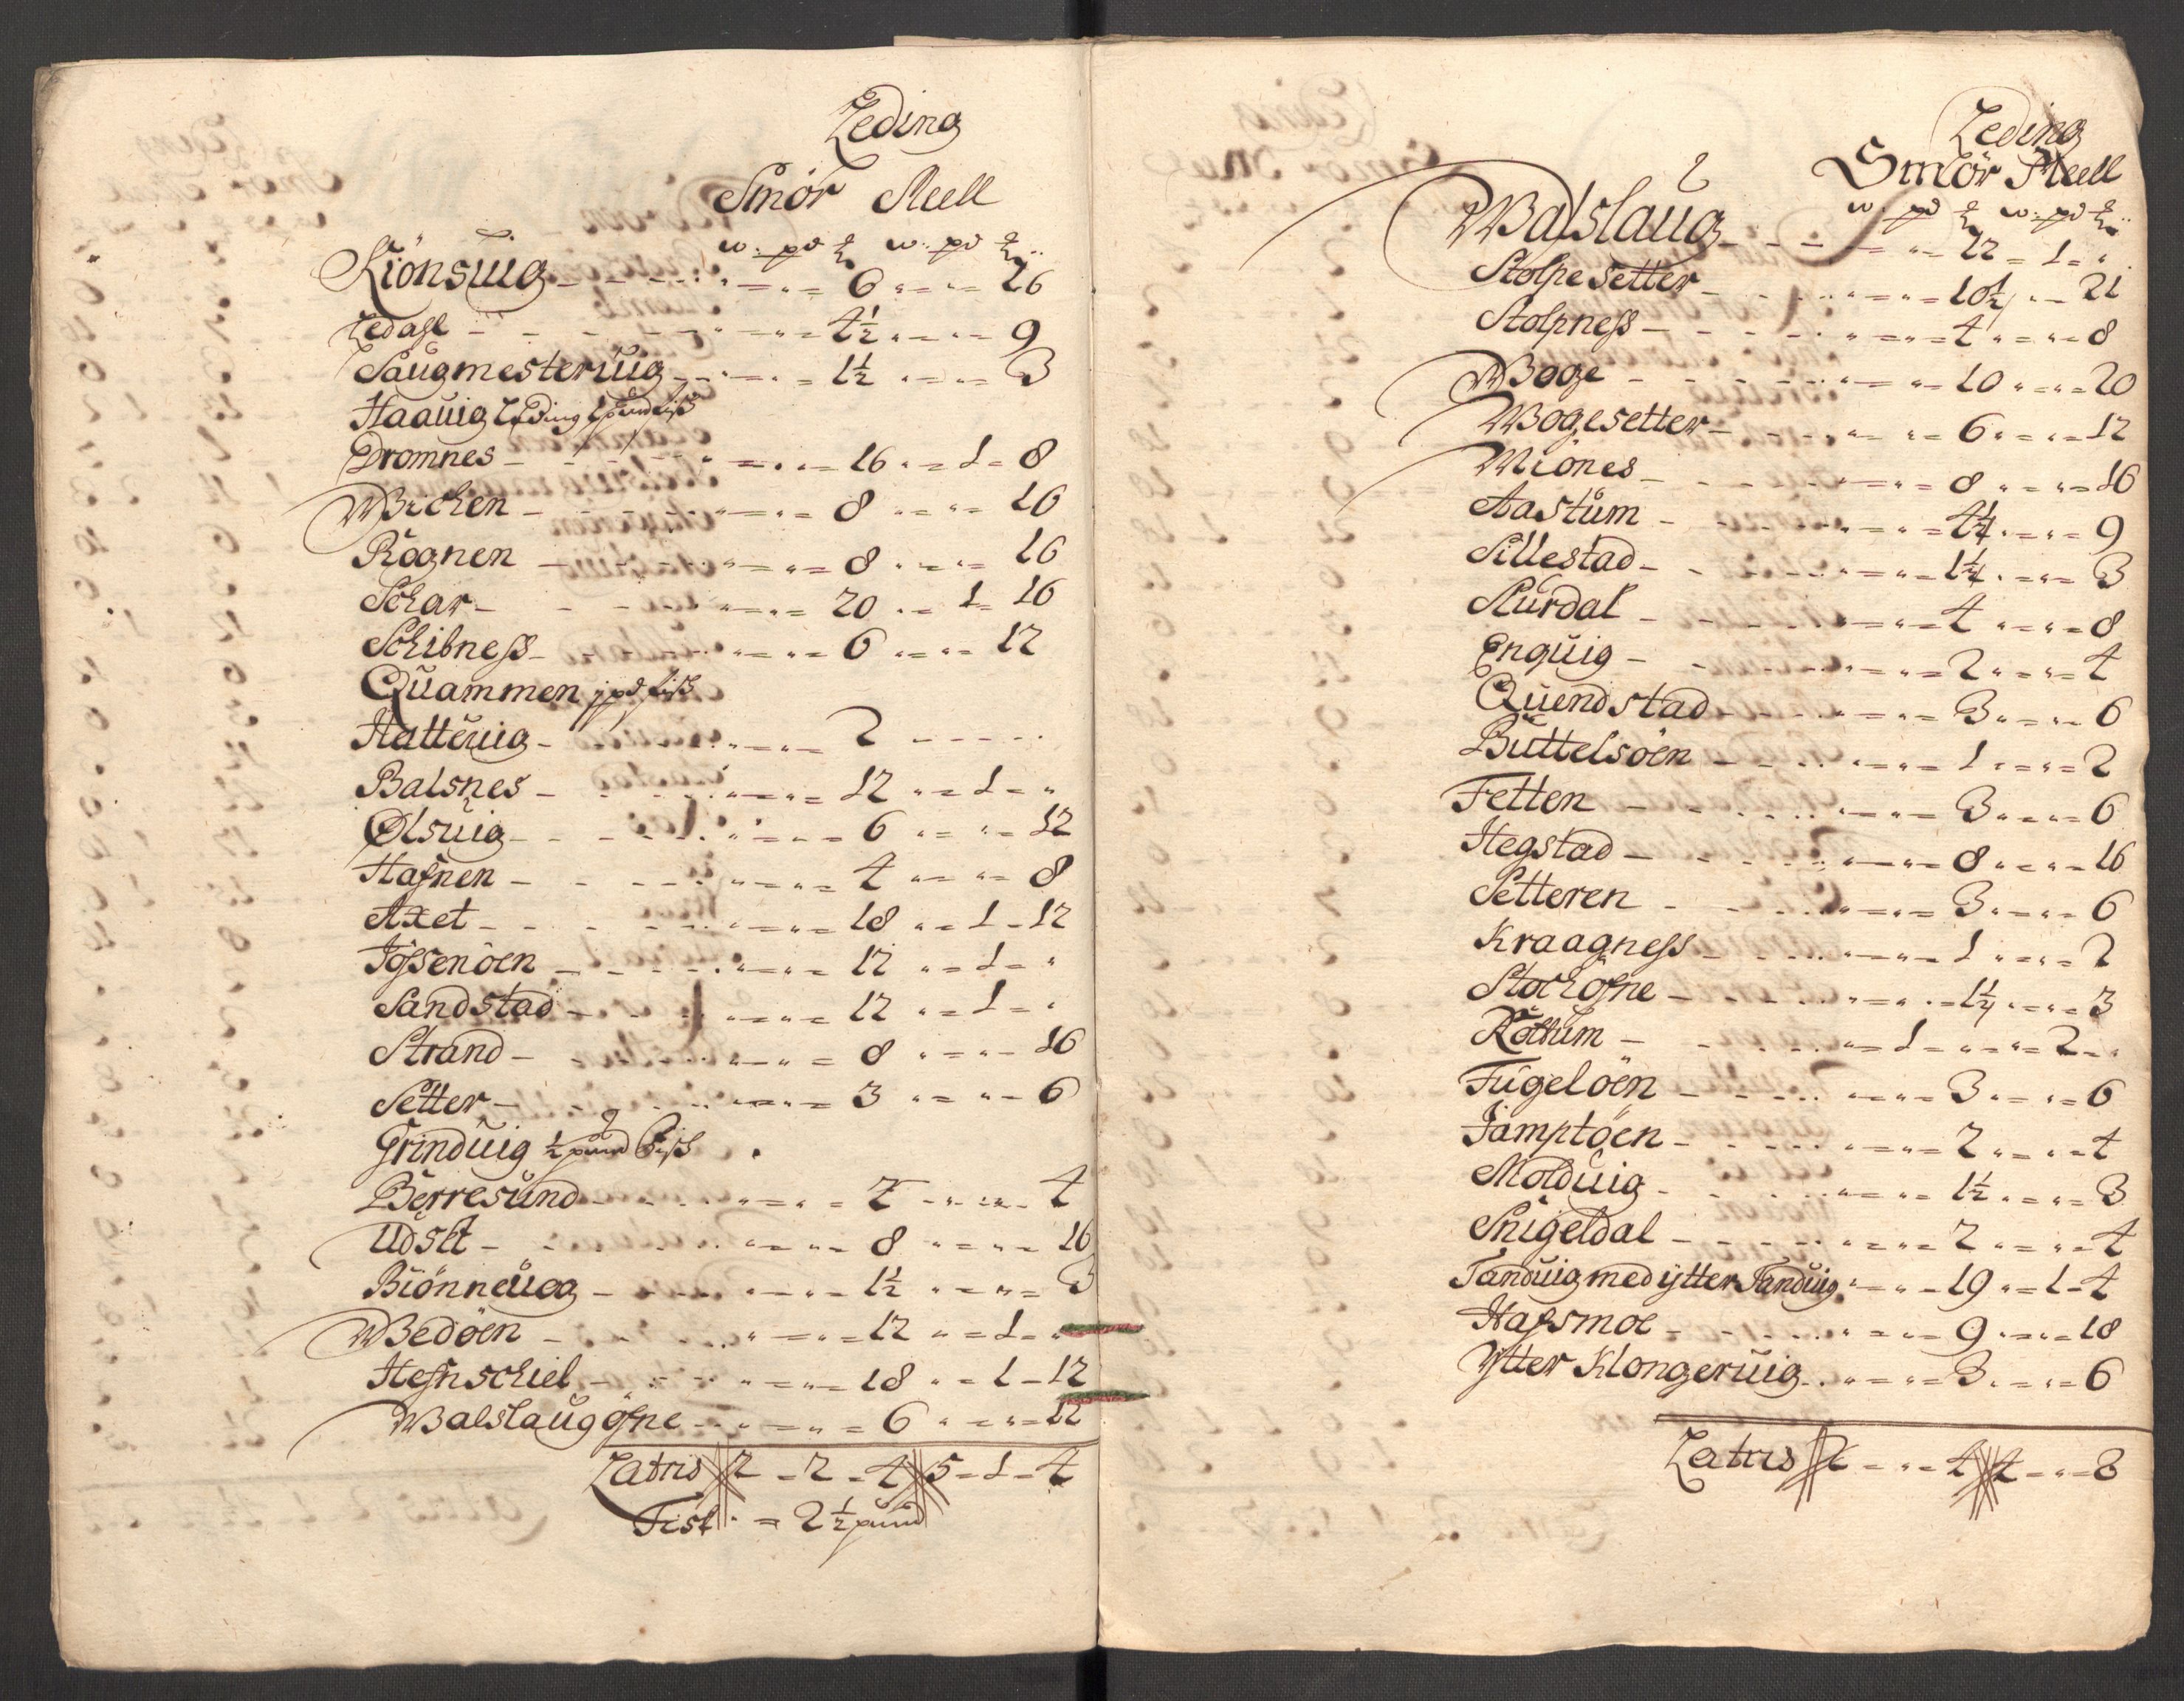 Leding
Smör Meell
w: pd ℔ w: pd ℔
Kiönsuig - - - " = " = 6 " = " = 16
Ledahl - - - " = " = 4½ " = " = 9
Saugmesteruig - - " = " = 1½ " = " = 3
Haauig Leding 1 pund fisk
Dromnes - - - " = " = 16 " = 1 = 8
Wichen - - - " = " = 8 " = " = 16
Rögnen - - - " = " = 8 " = " = 16
Schar - - - " = " = 20 " = 1 = 16
Schibness - - - " = " = 6 " = " = 12
Quammen 1 pd fisk
Hatteuig - - - " = " = 2 - - - -
Balsnes - - - " = " = 12 " = 1 = "
Ølsuig - - - " = " = 6 " = " = 12
Hafnen - - - " = " = 4 " = " = 8
Axet - - - " = " = 18 " = 1 = 12
Jössenöen - - - " = " = 12 " = 1 = "
Sandstad - - - " = " = 12 " = 1 = "
Strand - - - " = " = 8 " = " = 16
Setter - - - " = " = 3 " = " = 6
Grinduig ½ pund Fisk
Berresund - - - " = " = 2 " = " = 4
Udset - - - " = " = 8 " = " = 16
Biönneuog - - - " = " = 1½ " = " = 3
Wedöen - - - " = " = 12 " = 1 = "
Hefnschiel - - - " = " = 18 " = 1 = 12
Walslaugöfne - - " = " = 6 " = " = 12
Latris 2 = 2 = 4 5 = 1 = 4
Fisk = 2½ pund
Leding
Smör Meell
w: pd ℔ w: pd ℔
Walslaug - - - " = 12 = 1 = "
Stolpesetter - - - " = " = 10½ " = 21
Stolpness - - - " = " = 4 " = " = 8
Woge - - - " = " = 10 " = " = 20
Wogesetter - - - " = " = 6 " = " = 12
Miönes - - - " = " = 8 " = " = 16
Aastum - - - " = " = 4½ " = " = 9
Sillestad - - - " = " = 1½ " = " = 3
Slurdal - - - " = " = 4 " = " = 8
Enguig - - - " = " = 2 " = " = 4
Quendstad - - - " = " = 3 " = " = 6
Buttelsöen - - - " = " = 1 " = " = 2
Fetten - - - " = " = 3 " = " = 6
Hegstad - - - " = " = 8 " = " = 16
Setteren - - - " = " = 3 " = " = 6
Kraagness - - - " = " = 1 " = " = 2
Stochöfne - - - " = " = 1½ " = " = 3
Röttum - - - " = 1 = " = " = 2 = "
Fugelöen - - - " = " = 3 " = " = 6
Jamptöen - - - " = " = 2 " = " = 4
Molduig - - - " = " = 1½ " = " = 3
Snigeldal - - - " = " = 2 " = " = 4
Tanduig med ytter Tanduig " = " = 19 " = 1 = 4
Hafsmoe - - - " = " = 9 " = " = 18
Ytter Klongeruig - " = " = 3 " = " = 6
Latris 2 = " = 4 4 = " = 8